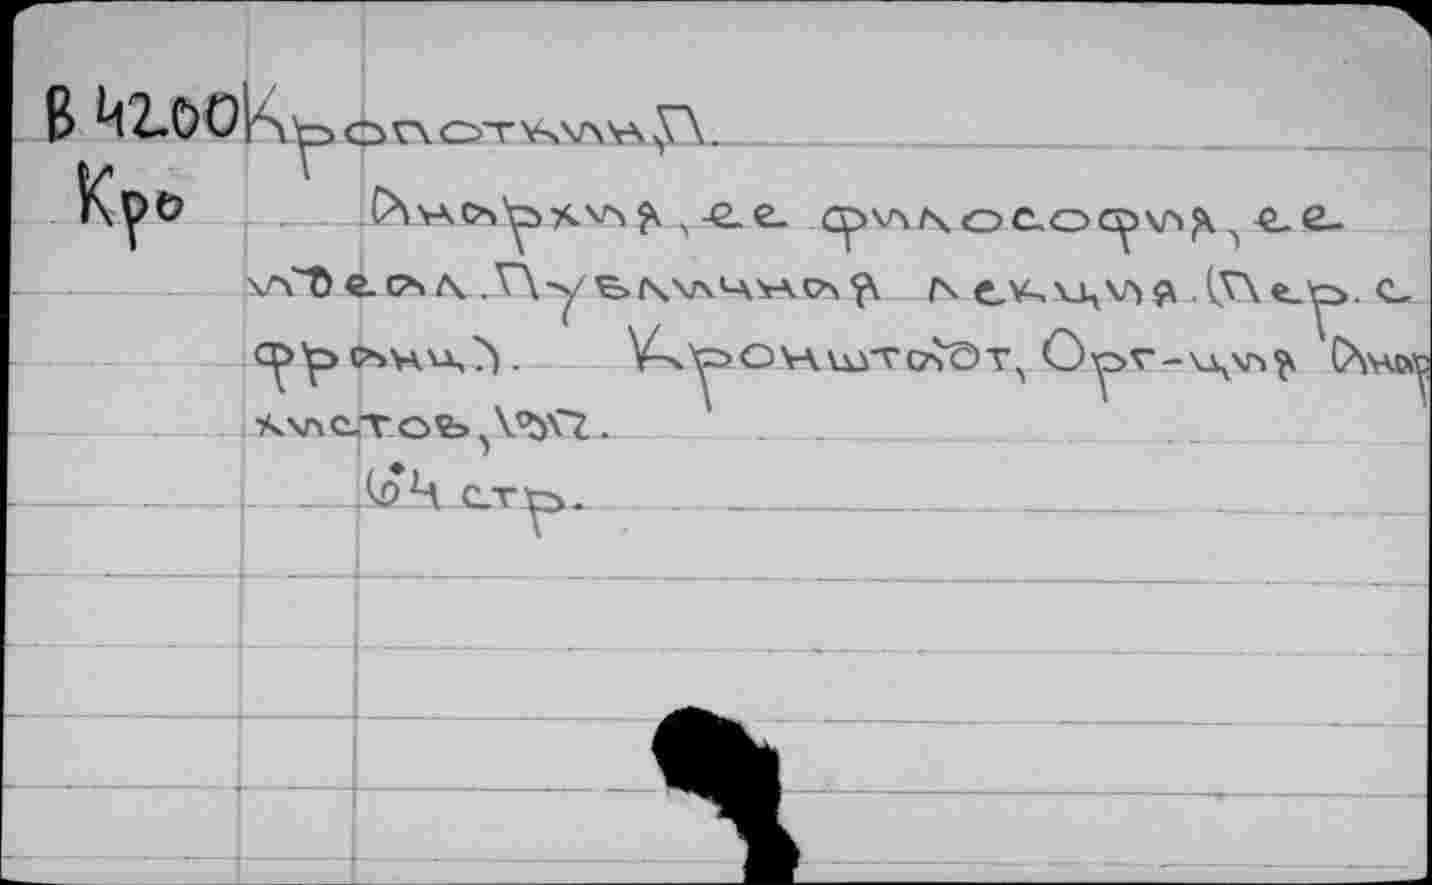 В 4200 Кропоткин,П.
Кро Анархия, ее философия, ее
идеал. Публичная лекция. (Пер. с
франц.). Кронштадт, Орг-ция Анар
хистов, 1917.
64 стр.